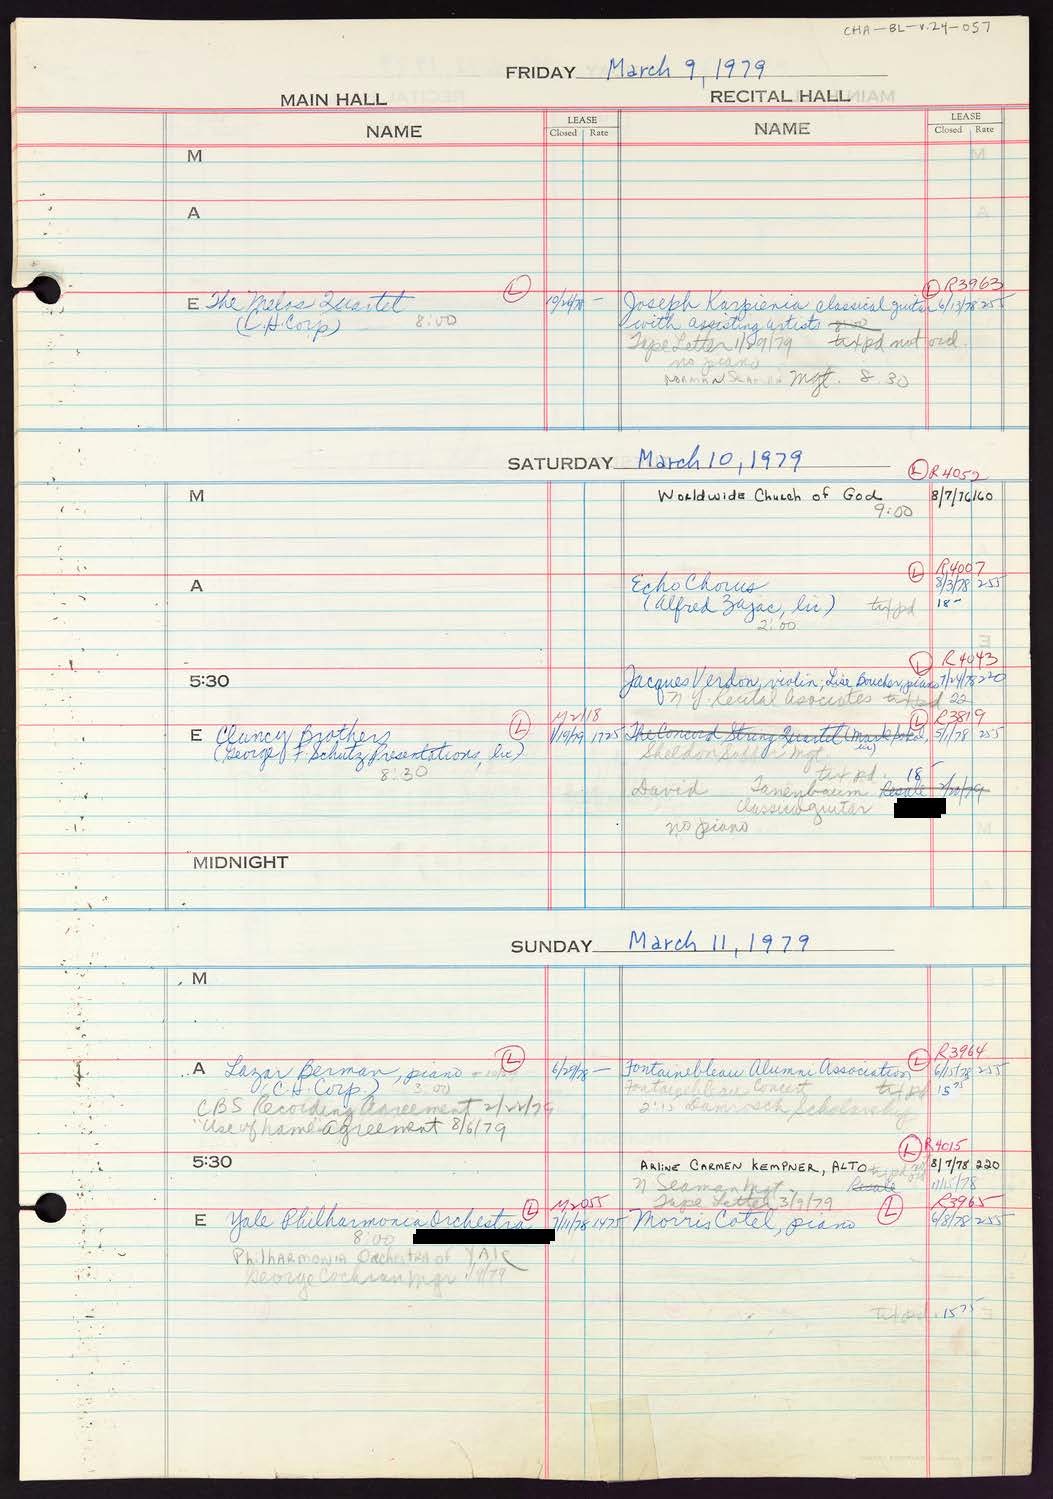 CHA-BL-v.24-057
FRIDAY March 9, 1979
MAIN HALL RECITAL HALL
NAME LEASE Closed Rate NAME LEASE Closed Rate
M
A
L R3963
E The Melos Quartet L 9/26/78 - Joseph Karpienia classical guitar 6/13/78 255
(C.H. Corp) 8:00 with assisting artists 8:00
Tape Letter 1/29/79 tax pd not ord.
no piano
NORMAN SEAMAN Mgt. 8:30
SATURDAY March 10, 1979
L R4052
M Worldwide Church of God 8/7/76 160
9:00
L R4007
A Echo Chorus 8/3/78 255
(Alfred Zajac, lic) tax pd 18-
2:00
L R4043
5:30 Jacques Verdon, violin; Lise Boucher, piano 7/24/78 220
N Y Recital Associates tax pd 22
M2118 L R3819
E Clancy Brothers L 1/19/79 1725 The Concord String Quartet (Mark lic) 5/1/78 255
(George F. Schutz Presentations, lic) Sheldon Soffer Mgt
8:30 tax pd. 18-
David Tanenbaum Resale 2/20/79
classical guitar
no piano
MIDNIGHT
SUNDAY March 11, 1979
M
L R3964
A Lazar Berman, piano L 6/29/78 - Fontainebleau Alumni Association 6/15/78 255
(C.H. Corp.) 3:00 Fontainebleau Concert tax pd 15 75
CBS Recording Agreement 2/22/79 2:15 Damrosch Scholarship
"Use of name" agreement 8/6/79
L R4015
5:30 ARLINE CARMEN KEMPNER, ALTO tax pd not ord 8/7/78 220
N Seaman Mgt. Resale 11/15/78
Tape Letter 3/9/79
M2055 R3965
E Yale Philharmonia Orchestra L 7/11/78 1475 Morris Cotel, piano L 6/8/78 255
8:00
Philharmonia Orchestra of YALE
George Cochran Mgr 1/9/79
tax pd. 15 75